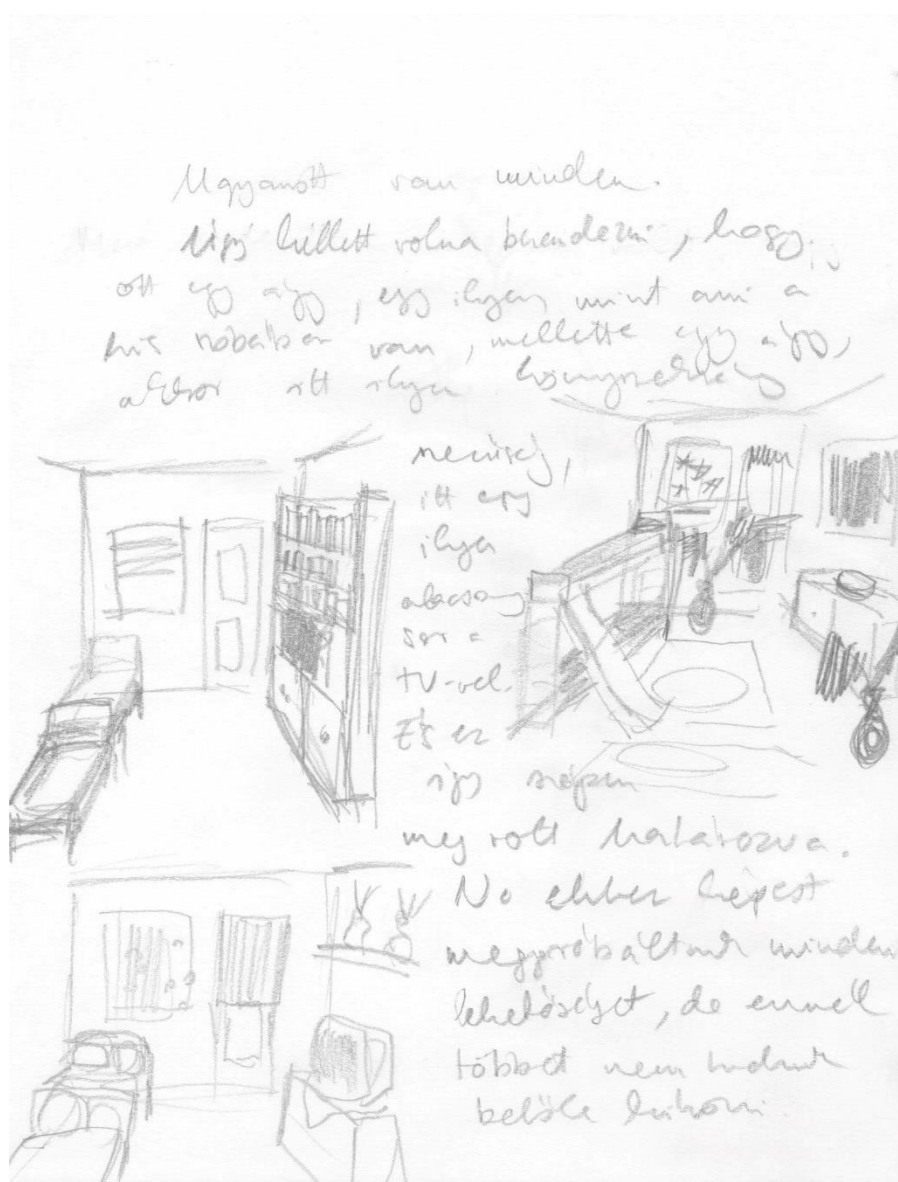 Ugyanott van minden.
Úgy kellett volna berendezni, hogy
ott egy ágy, egy ilyen mint ami a
kis szobában van, mellette egy ágy,
akkor itt ilyen könyvszekrény
itt egy
ilyen
alacsony
sor a
TV-vel.
És ez
így szépen
meg volt határozva.
No ehhez képest
megpróbáltunk minden
lehetőséget, de ennél
többet nem tudunk
belőle kihozni.